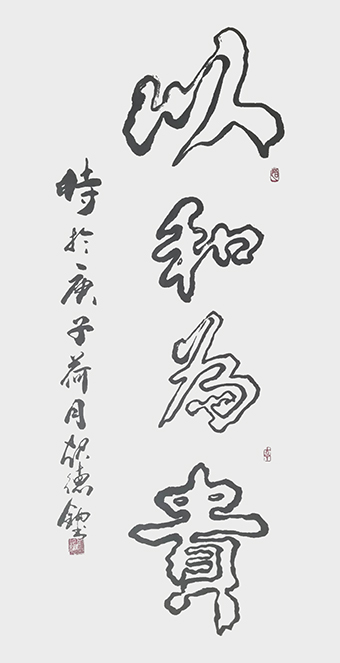 以和為貴
時於庚子荷月